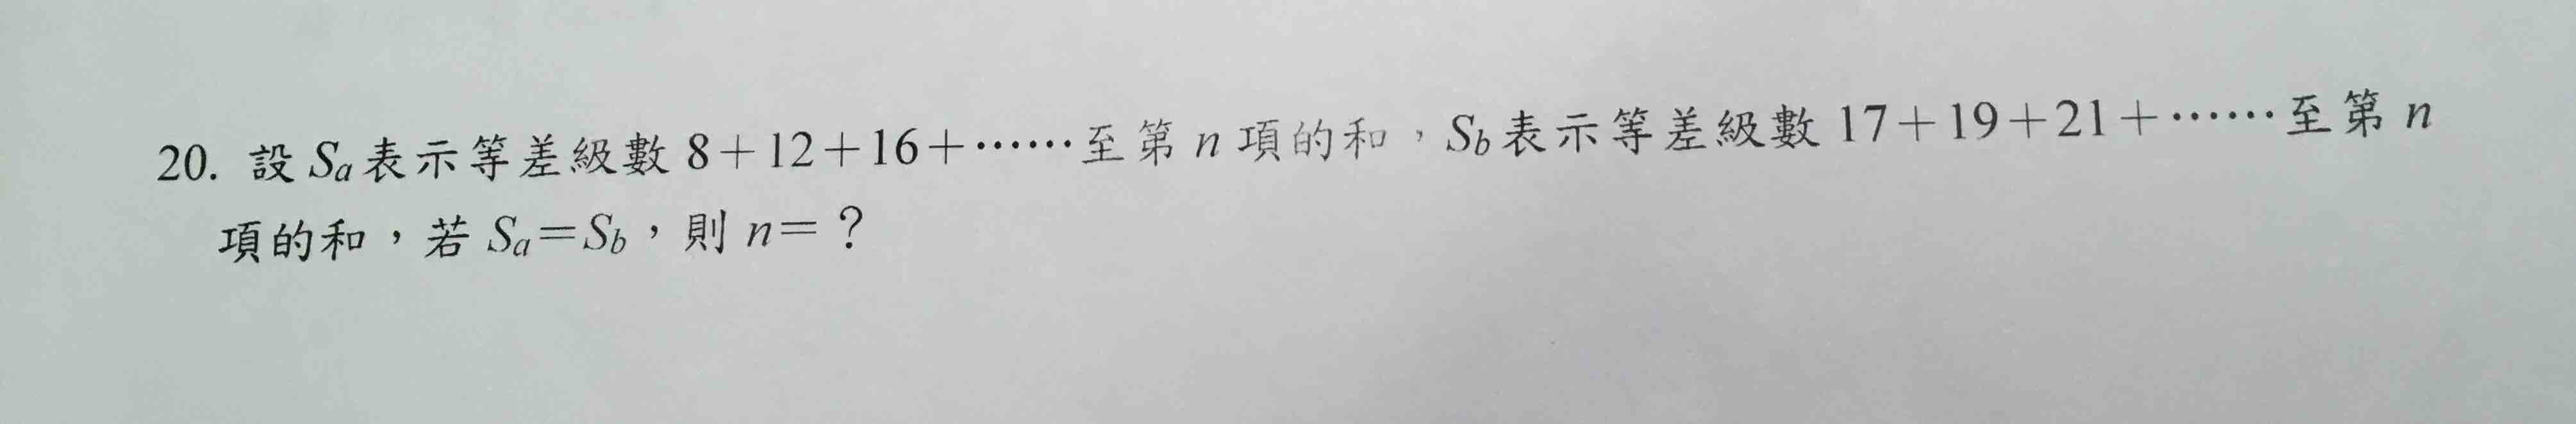 20. 設 Sa 表示等差級數 8+12+16+……至第 n 項的和，Sb 表示等差級數 17+19+21+……至第 n
項的和，若 Sa=Sb，則 n=？